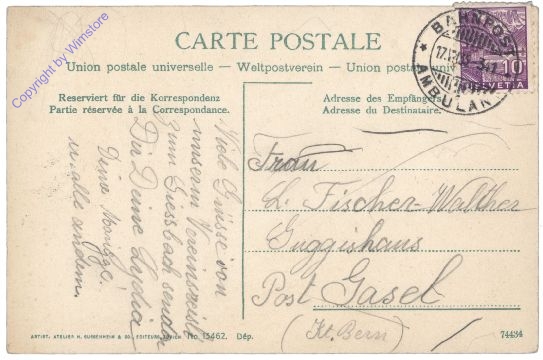 Copyright by Wimstore
CARTE POSTALE
Union postale universelle – Weltpostverein – Union postale universelle
Reserviert für die Korrespondenz
Partie réservée à la Correspondance.
Adresse des Empfängers.
Adresse du Destinataire.
BAHNPOST
AMBULANT
10
HELVETIA
Viele Grüsse von
unserm Vereinsreisli
zum Giessbach sendet
Dir Deine Lydia
Dina
u. alle andern.
Frau
L. Fischer-Walther
Guggishaus
Post Gasel
(Kt. Bern)
ARTIST. ATELIER H. GUGGENHEIM & CO., EDITEURS, ZÜRICH No. 15462. Dép.
74434